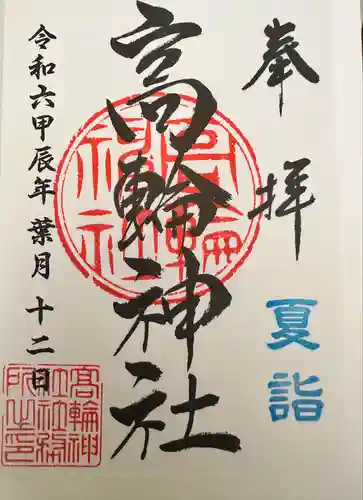 奉拝
夏詣
高輪神社
令和六甲辰年葉月十二日
高輪神社
高輪神社社務所之印